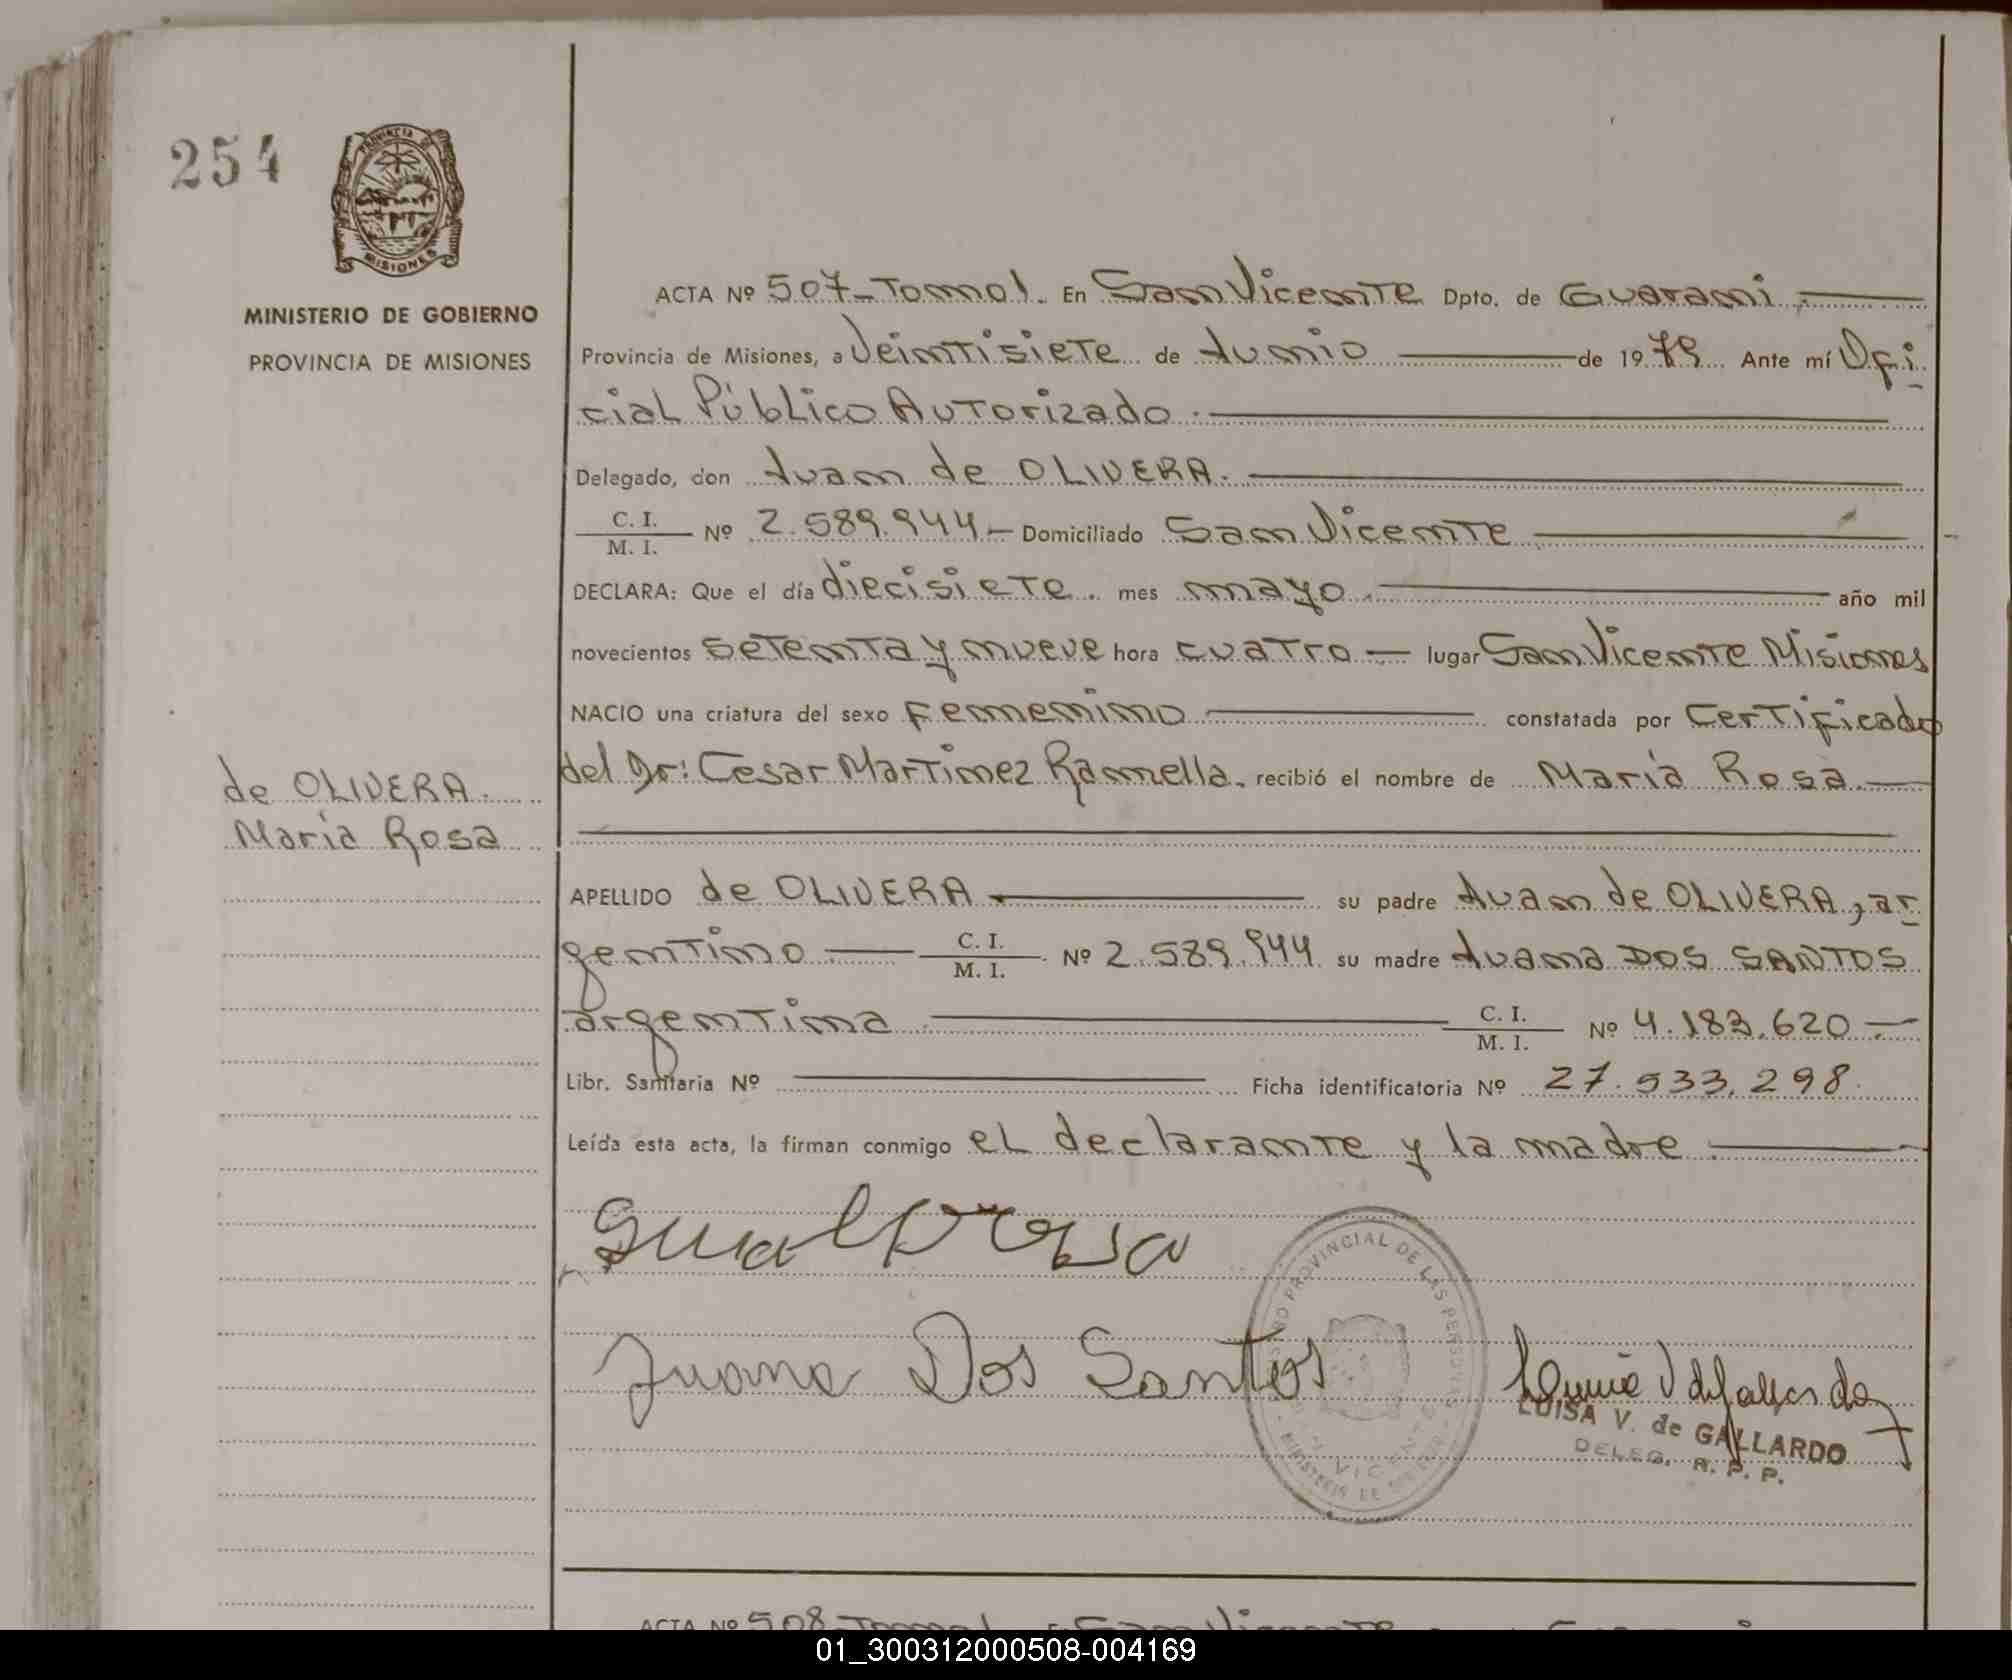 254
PROVINCIA DE
MISIONES
MINISTERIO DE GOBIERNO
PROVINCIA DE MISIONES
ACTA Nº 507-Tomo I. En San Vicente Dpto. de Guaraní.
Provincia de Misiones, a Veintisiete de Junio de 1979 Ante mí Ofi
cial Público Autorizado.
Delegado, don Juan de OLIVERA.
C. I.
M. I. Nº 2.589.944- Domiciliado San Vicente
DECLARA: Que el día diecisiete. mes mayo. año mil
novecientos setenta y nueve hora cuatro - lugar San Vicente Misiones
NACIO una criatura del sexo femenino constatada por Certificado
del Dr: Cesar Martinez Ramella. recibió el nombre de María Rosa.
de OLIVERA.
María Rosa
APELLIDO de OLIVERA su padre Juan de OLIVERA, ar
gentino C. I.
M. I. Nº 2.589.944 su madre Juana DOS SANTOS
argentina C. I.
M. I. Nº 4.183.620-
Libr. Sanitaria Nº Ficha identificatoria Nº 27.533.298.
Leída esta acta, la firman conmigo el declarante y la madre.
Juana Dos Santos
REGISTRO PROVINCIAL DE LAS PERSONAS
S. VICENTE
MINISTERIO DE GOBIERNO
LUISA V. de GALLARDO
DELEG. R. P. P.
ACTA Nº 508-Tomo I En San Vicente
01_300312000508-004169